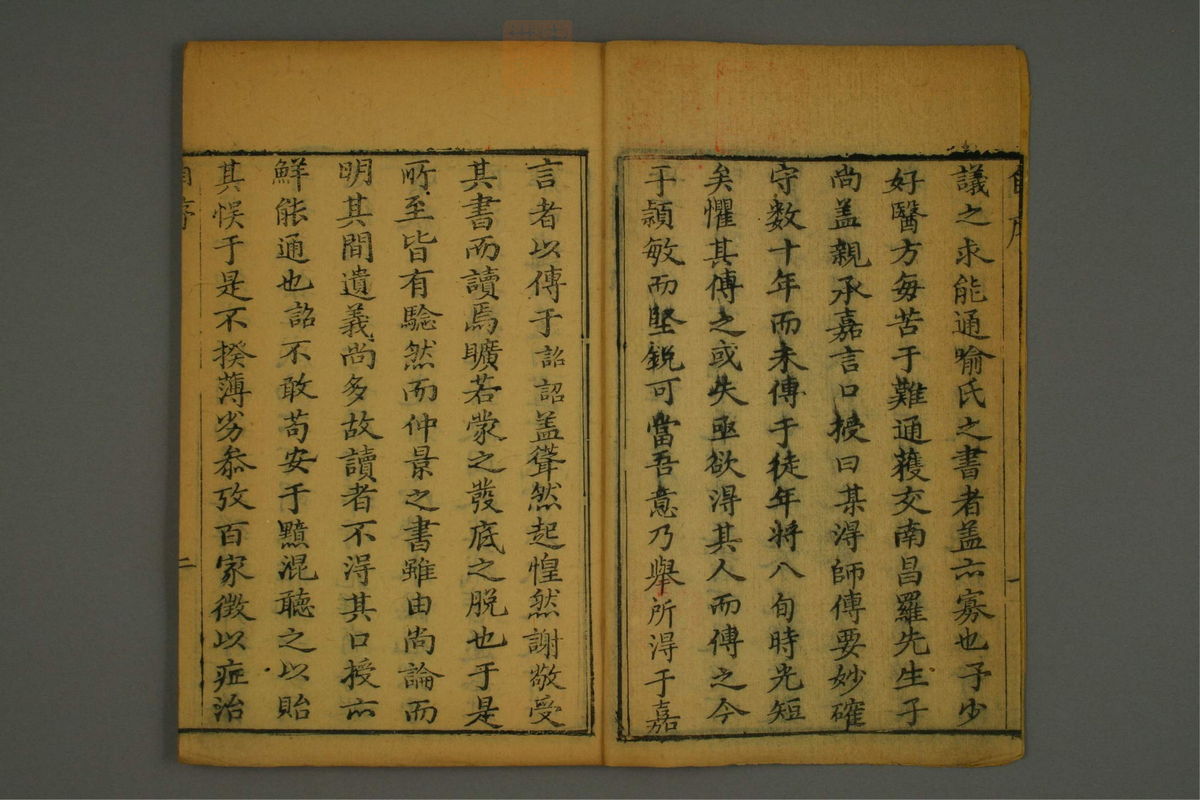 議之求能通喻氏之書者盖亦寡也予少
好醫方每苦于難通獲交南昌羅先生子
尚盖親承嘉言口授曰某淂師傳要妙確
守数十年而未傳于徒年将八旬時光短
矣懼其傳之或失亟欲淂其人而傳之今
子頴敏而堅鋭可當吾意乃舉所淂于嘉
言者以傳于詔詔盖聳然起惶然謝敬受
其書而讀焉曠若蒙之發底之脱也于是
所至皆有驗然而仲景之書雖由尚論而
明其間遺義尚多故讀者不淂其口授亦
鮮能通也詔不敢苟安于黮混聽之以貽
其悞于是不揆薄劣叅攷百家徴以症治
自序
二